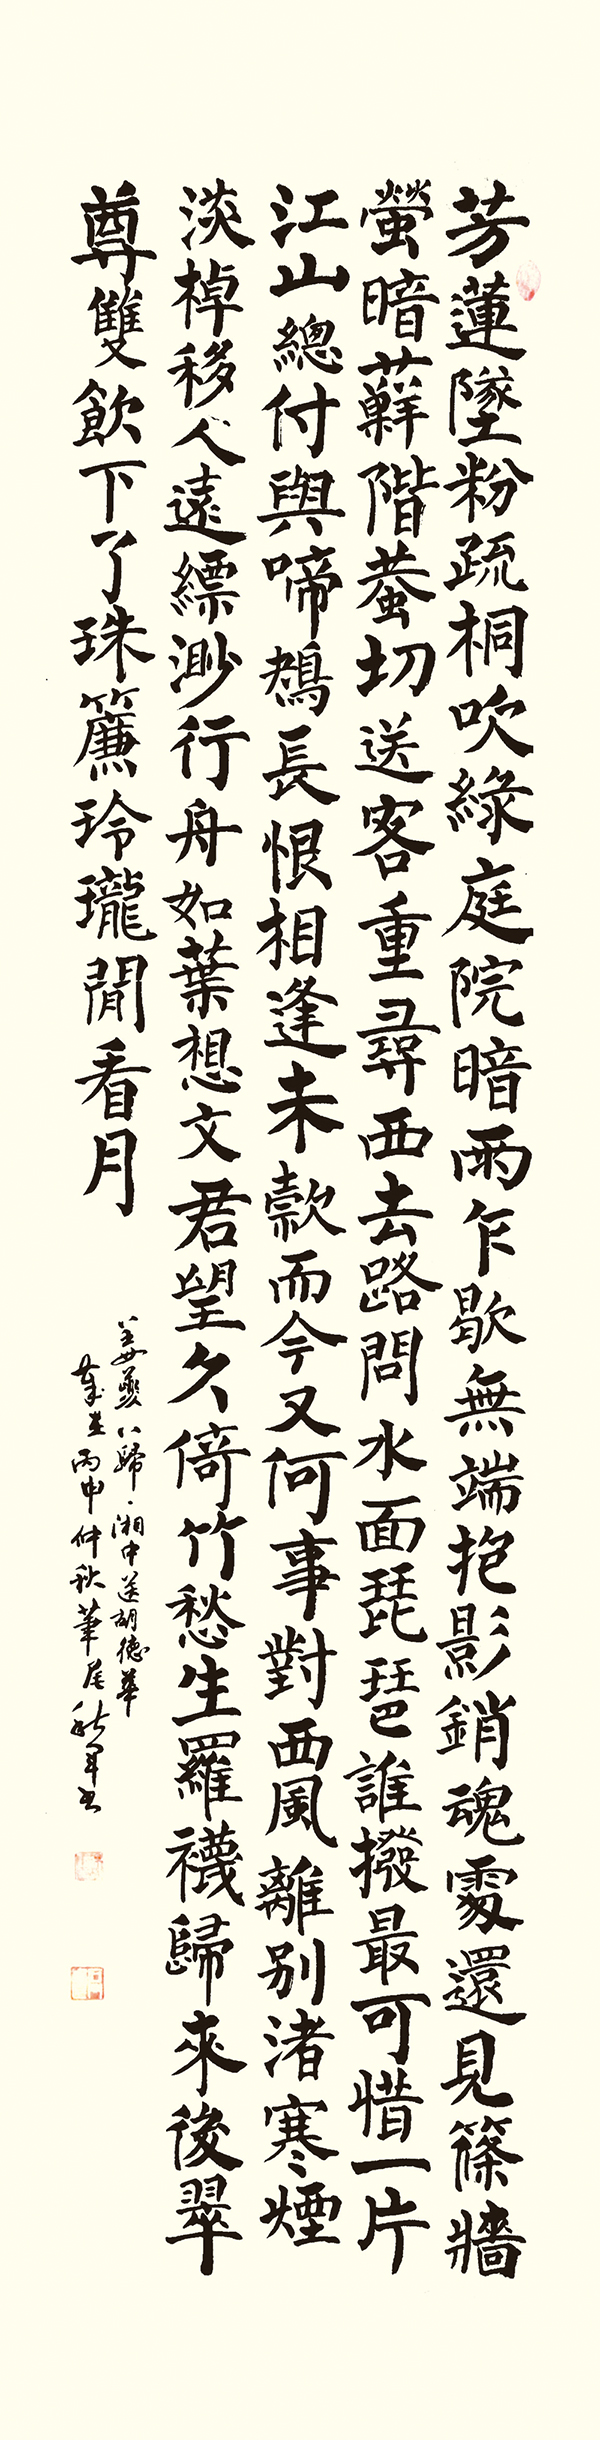 芳蓮墜粉疏桐吹綠庭院暗雨乍歇無端抱影銷魂處還見篠牆
螢暗蘚階蛩切送客重尋西去路問水面琵琶誰撥最可惜一片
江山總付與啼鴂長恨相逢未款而今又何事對西風離別渚寒煙
淡棹移人遠縹渺行舟如葉想文君望久倚竹愁生羅襪歸來後翠
尊雙飲下了珠簾玲瓏閒看月
姜夔八歸·湘中送胡德華
丙申仲秋筆